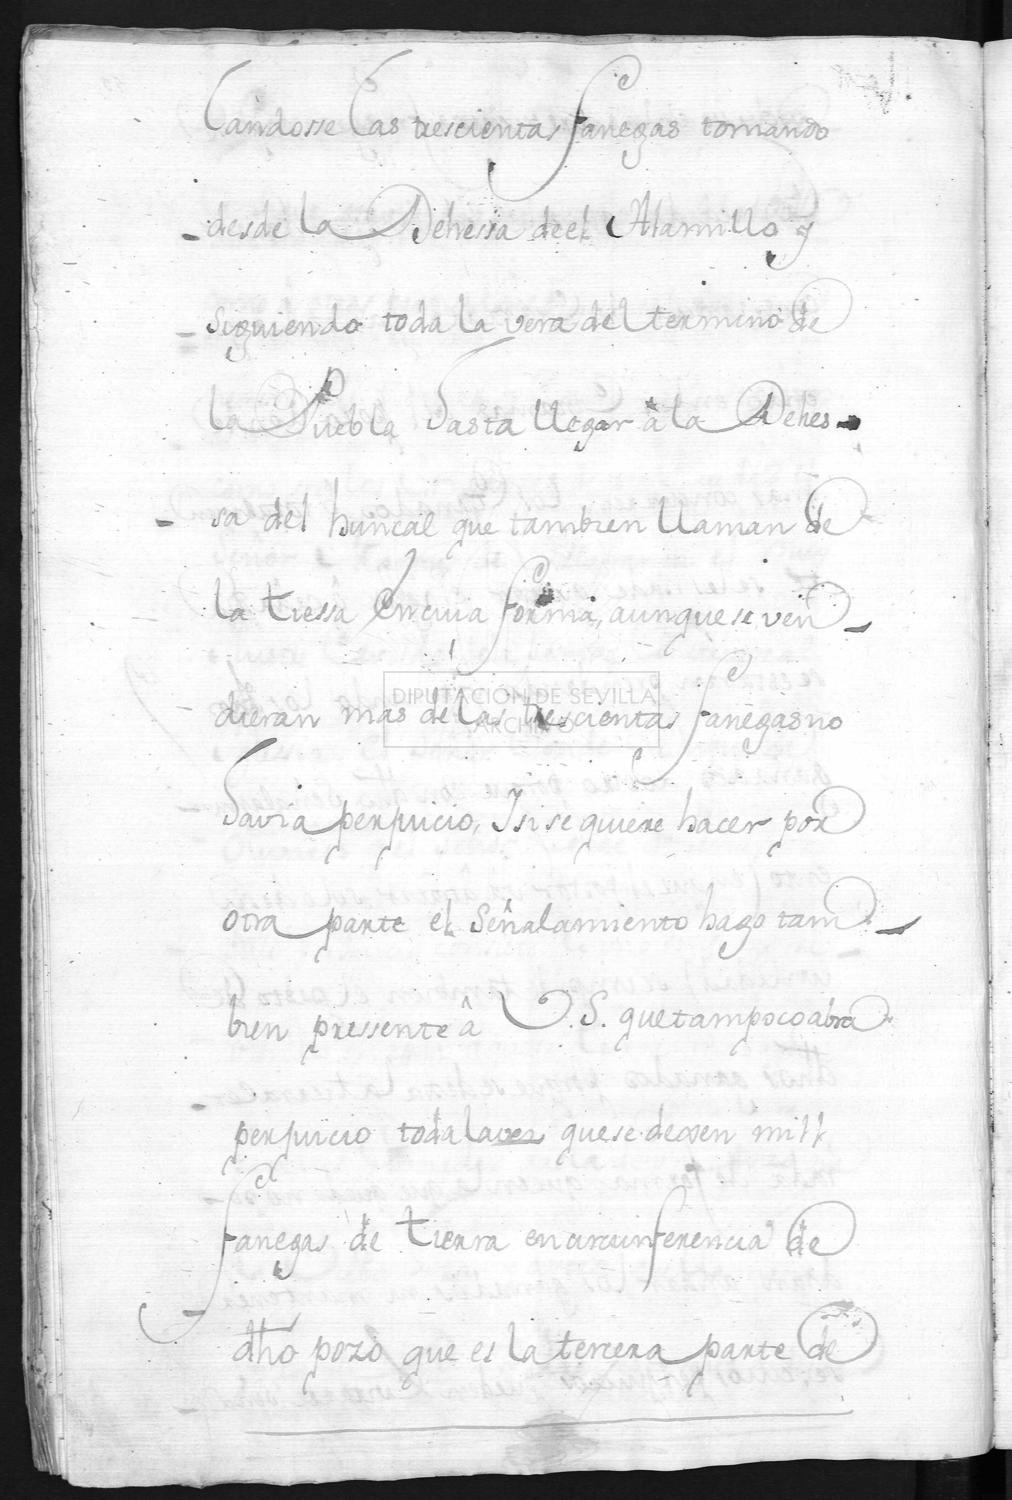 Candosse las trescientas fanegas tomando
desde la Dehessa deel Alamillo y
siguiendo toda la vera del termino de
la Puebla hasta llegar â la Dehes
sa del huncal que tambien llaman de
la tiessa En cuia forma, aunque se ven
dieran mas de las trescientas fanegas no
havia perjuicio, Y si se quiere hacer por
otra parte el Señalamiento hago tam
bien pressente â V.S. que tampoco abra
perjuicio toda la vez que se dexen mill
fanegas de tierra en circunferencia de
dho pozo que es la tercera parte de
DIPUTACIÓN DE SEVILLA
ARCHIVO